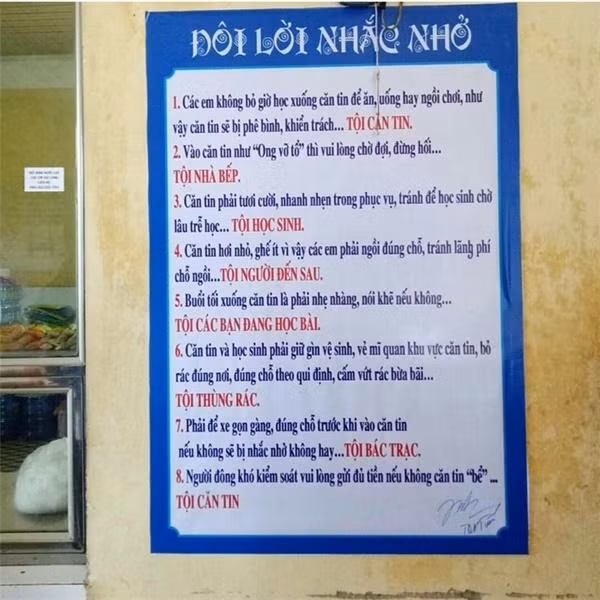 ĐÔI LỜI NHẮC NHỞ
1. Các em không bỏ giờ học xuống căn tin để ăn, uống hay ngồi chơi, như
vậy căn tin sẽ bị phê bình, khiển trách... TỘI CĂN TIN.
2. Vào căn tin như “Ong vỡ tổ” thì vui lòng chờ đợi, đừng hối...
TỘI NHÀ BẾP.
3. Căn tin phải tươi cười, nhanh nhẹn trong phục vụ, tránh để học sinh chờ
lâu trễ học... TỘI HỌC SINH.
4. Căn tin hơi nhỏ, ghế ít vì vậy các em phải ngồi đúng chỗ, tránh lãng phí
chỗ ngồi...TỘI NGƯỜI ĐẾN SAU.
5. Buổi tối xuống căn tin là phải nhẹ nhàng, nói khẽ nếu không...
TỘI CÁC BẠN ĐANG HỌC BÀI.
6. Căn tin và học sinh phải giữ gìn vệ sinh, vẻ mĩ quan khu vực căn tin, bỏ
rác đúng nơi, đúng chỗ theo qui định, cấm vứt rác bừa bãi...
TỘI THÙNG RÁC.
7. Phải để xe gọn gàng, đúng chỗ trước khi vào căn tin
nếu không sẽ bị nhắc nhở không hay...TỘI BÁC TRẠC.
8. Người đông khó kiểm soát vui lòng gửi đủ tiền nếu không căn tin “bể” ...
TỘI CĂN TIN